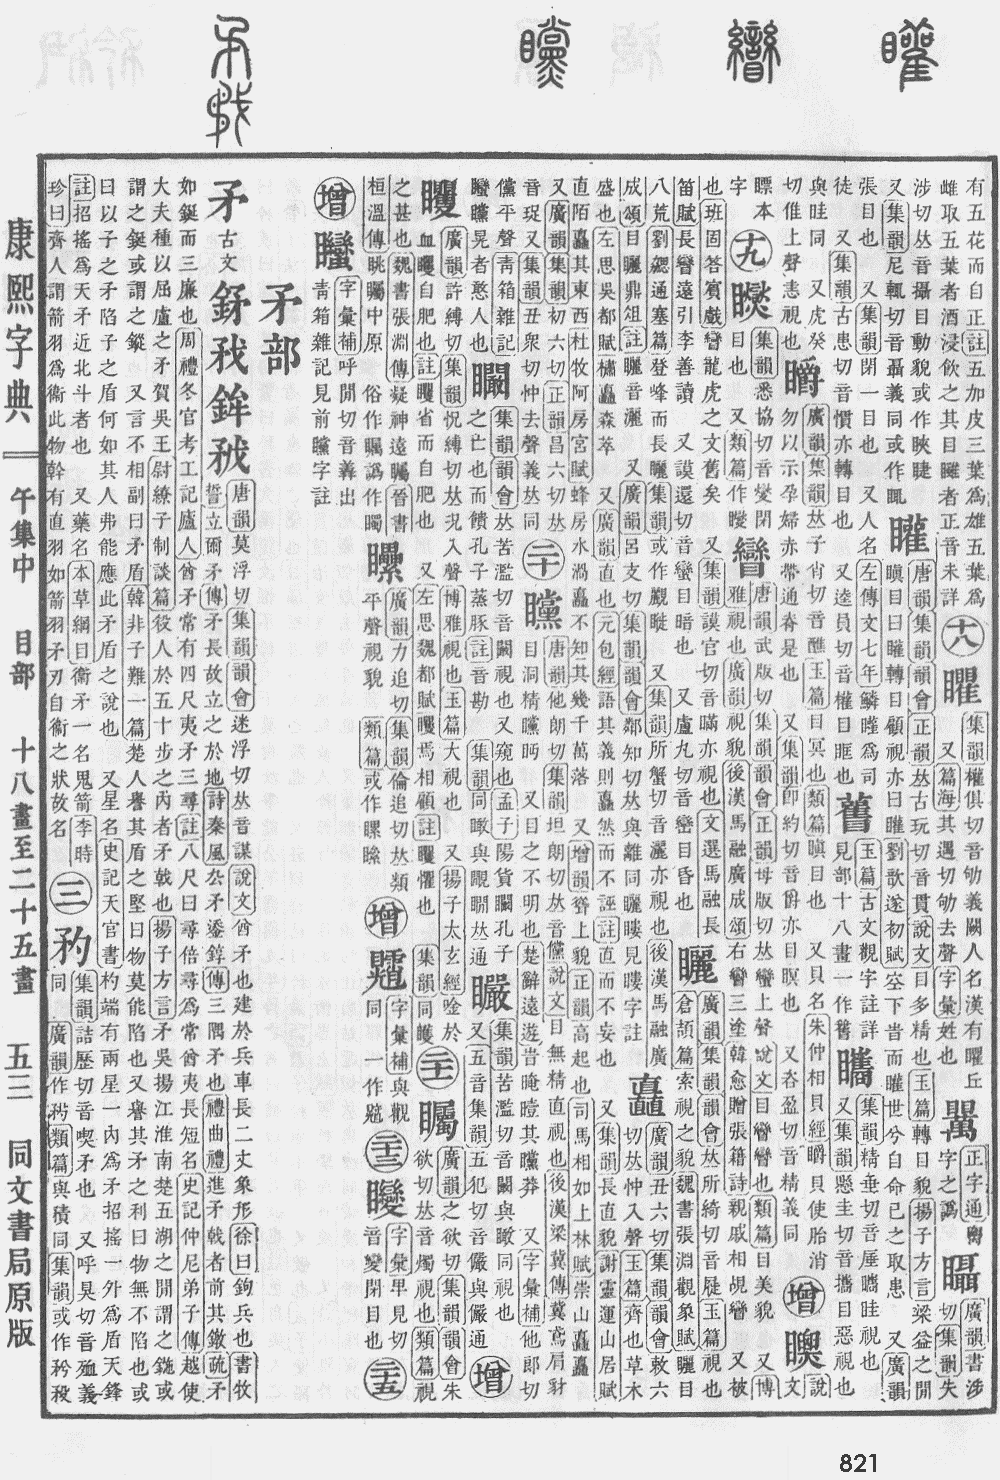 有五花而自正註五加皮三葉爲雄五葉爲
雌取五葉者酒浸飲之其目矐者正音未詳 十八 矅 集韻權俱切音劬義闕人名漢有矅丘
又篇海其遇切劬去聲字彙姓也
正字通 字之譌 廣韻書涉
切集韻失
涉切𠀤音攝目動貌或作䀹睫
又集韻尼輒切音聶義同或作䀹
矔 唐韻集韻韻會正韻𠀤古玩切音貫說文目多精也玉篇轉目貌揚子方言梁益之閒
瞋目曰矔轉目顧視亦曰矔劉歆遂初賦空下旹而矔世兮自命己之取患 又廣韻
張目也 又集韻閉一目也 又人名左傳文七年鱗矔爲司
徒 又集韻古患切音慣亦轉目也 又逵員切音權目眶也
舊 玉篇古文觀字註詳
見部十八畫一作𥋟
集韻精垂切音厜
又集韻懸圭切音攜目惡視也
與眭同 又虎癸
切倠上聲恚視也
矙 廣韻集韻𠀤子肖切音醮玉篇目冥也類篇瞋目也 又貝名朱仲相貝經矙貝使胎消
勿以示孕婦赤帶通脊是也 又集韻卽約切音爵亦目瞑也
增 說文
瞟本
字 十九
集韻悉協切音燮閉
目也 又類篇作㬪
矕 唐韻武版切集韻韻會正韻母版切𠀤蠻上聲說文目矕矕也類篇目美貌 又博
雅視也廣韻視貌後漢馬融廣成頌右矕三途韓愈贈張籍詩親戚相覘矕 又被
也班固答賓戲矕龍虎之文舊矣 又集韻謨官切音瞞亦視也文選馬融長
笛賦長矕遠引李善讀 又謨還切音蠻目暗也 又盧丸切音巒目昏也
矖 廣韻集韻韻會𠀤所綺切音屣玉篇視也
倉頡篇索視之貌魏書張淵觀象賦矖目
八荒劉勰通塞篇登峰而長矖集韻或作𧢪 又集韻所蟹切音灑亦視也後漢馬融廣
成頌目矖鼎俎註矖音灑 又廣韻呂支切集韻韻會鄰知切𠀤與離同矖䁖見䁖字註
矗 廣韻丑六切集韻韻會敕六
切𠀤仲入聲玉篇齊也草木
盛也左思吳都賦橚矗森萃 又廣韻直也元包經語其義則矗然而不誣註直而不妄也 又集韻長直貌謝靈運山居賦
直陌矗其東西杜牧阿房宮賦蜂房水渦矗不知其幾千萬落 又增韻聳上貌正韻高起也司馬相如上林賦崇山矗矗
又廣韻集韻初六切正韻昌六切𠀤
音珿又集韻丑衆切仲去聲義𠀤同 二十 矘 唐韻他朗切集韻坦朗切𠀤音儻說文目無精直視也後漢梁冀傳冀鳶肩豺
目洞精矘眄 又目之不明也楚辭遠遊旹曖曃其矘莽 又字彙補他郎切
儻平聲靑箱雜記
矒矘晃者憨人也
矙 集韻韻會𠀤苦濫切音闞視也又窺也孟子陽貨矙孔子
之亡也而饋孔子蒸豚註音勘 集韻同瞰與𧡪瞯𠀤通
矙 集韻苦濫切音闞與瞰同視也
又五音集韻五犯切音儼與儼通 增
矍 廣韻許縛切集韻怳縛切𠀤兇入聲博雅視也玉篇大視也 又揚子太玄經唫於
血矍自肥也註矍省而自肥也 又左思魏都賦矍焉相顧註矍懼也 集韻同䂄
二十一 矚 廣韻之欲切集韻韻會朱
欲切𠀤音燭視也類篇視
之甚也魏書張淵傳凝神遠矚晉書
桓溫傳眺矚中原 俗作瞩譌作䠱
廣韻力追切集韻倫追切𠀤纍
平聲視貌 類篇或作瞟矊 增 字彙補與觀
同一作䞉 二十三 矎 字彙早見切
音變閉目也 二十五
增 字彙補呼閒切音義出
靑箱雜記見前矘字註
矛部
矛 古文 䤵 𢦧 鉾 𢦵 唐韻莫浮切集韻韻會迷浮切𠀤音謀說文酋矛也建於兵車長二丈象形徐曰鉤兵也書牧
誓立爾矛傳矛長故立之於地詩秦風厹矛鋈錞傳三隅矛也禮曲禮進矛戟者前其鐓疏矛
如鋋而三廉也周禮冬官考工記廬人酋矛常有四尺夷矛三尋註八尺曰尋倍尋爲常酋夷長短名史記仲尼弟子傳越使
大夫種以屈盧之矛賀吳王尉繚子制談篇役人於五十步之內者矛戟也揚子方言矛吳揚江淮南楚五湖之閒謂之鍦或
謂之鋋或謂之鏦 又言不相副曰矛盾韓非子難一篇楚人譽其盾之堅曰物莫能陷也又譽其矛之利曰物無不陷也或
曰以子之矛陷子之盾何如其人弗能應此矛盾之說也 又星名史記天官書杓端有兩星一內爲矛招搖一外爲盾天鋒
註招搖爲天矛近北斗者也 又藥名本草綱目衞矛一名鬼箭李時
珍曰齊人謂箭羽爲衞此物幹有直羽如箭羽矛刃自衞之狀故名 三 矵 集韻詰歷切音喫矛也 又呼臭切音殈義
同 廣韻作𥍟類篇與積同集韻或作矜𥍢
康熙字典 午集中 目部 十八畫至二十五畫 五三 同文書局原版
821